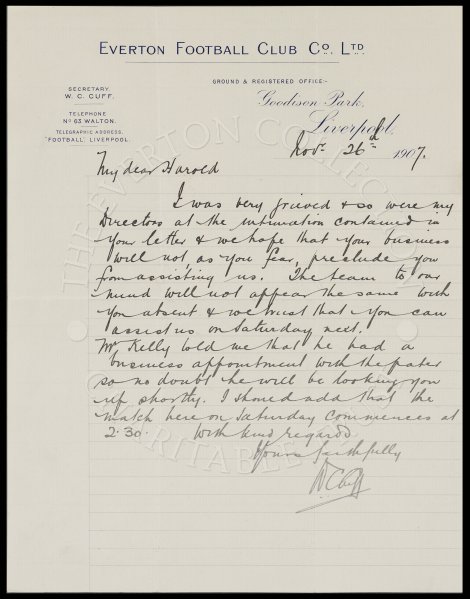 EVERTON FOOTBALL CLUB CO. LTD
GROUND & REGISTERED OFFICE:-
SECRETARY
W. C. CUFF.
TELEPHONE
No 63 WALTON.
TELEGRAPHIC ADDRESS,
"FOOTBALL", LIVERPOOL.
Goodison Park,
Liverpool,
Novr 26th 1907.
My dear Harold
I was very grieved & so were my
Directors at the intimation contained in
your letter & we hope that your business
will not, as you fear, preclude you
from assisting us. The team to our
mind will not appear the same with
you absent & we trust that you can
assist us on Saturday next.
Mr Kelly told me that he had a
business appointment with the pater
so no doubt he will be looking you
up shortly. I should add that the
match here on Saturday commences at
2.30. With kind regards
Yours faithfully
W C Cuff
THE EVERTON COLLECTION
CHARITABLE TRUST